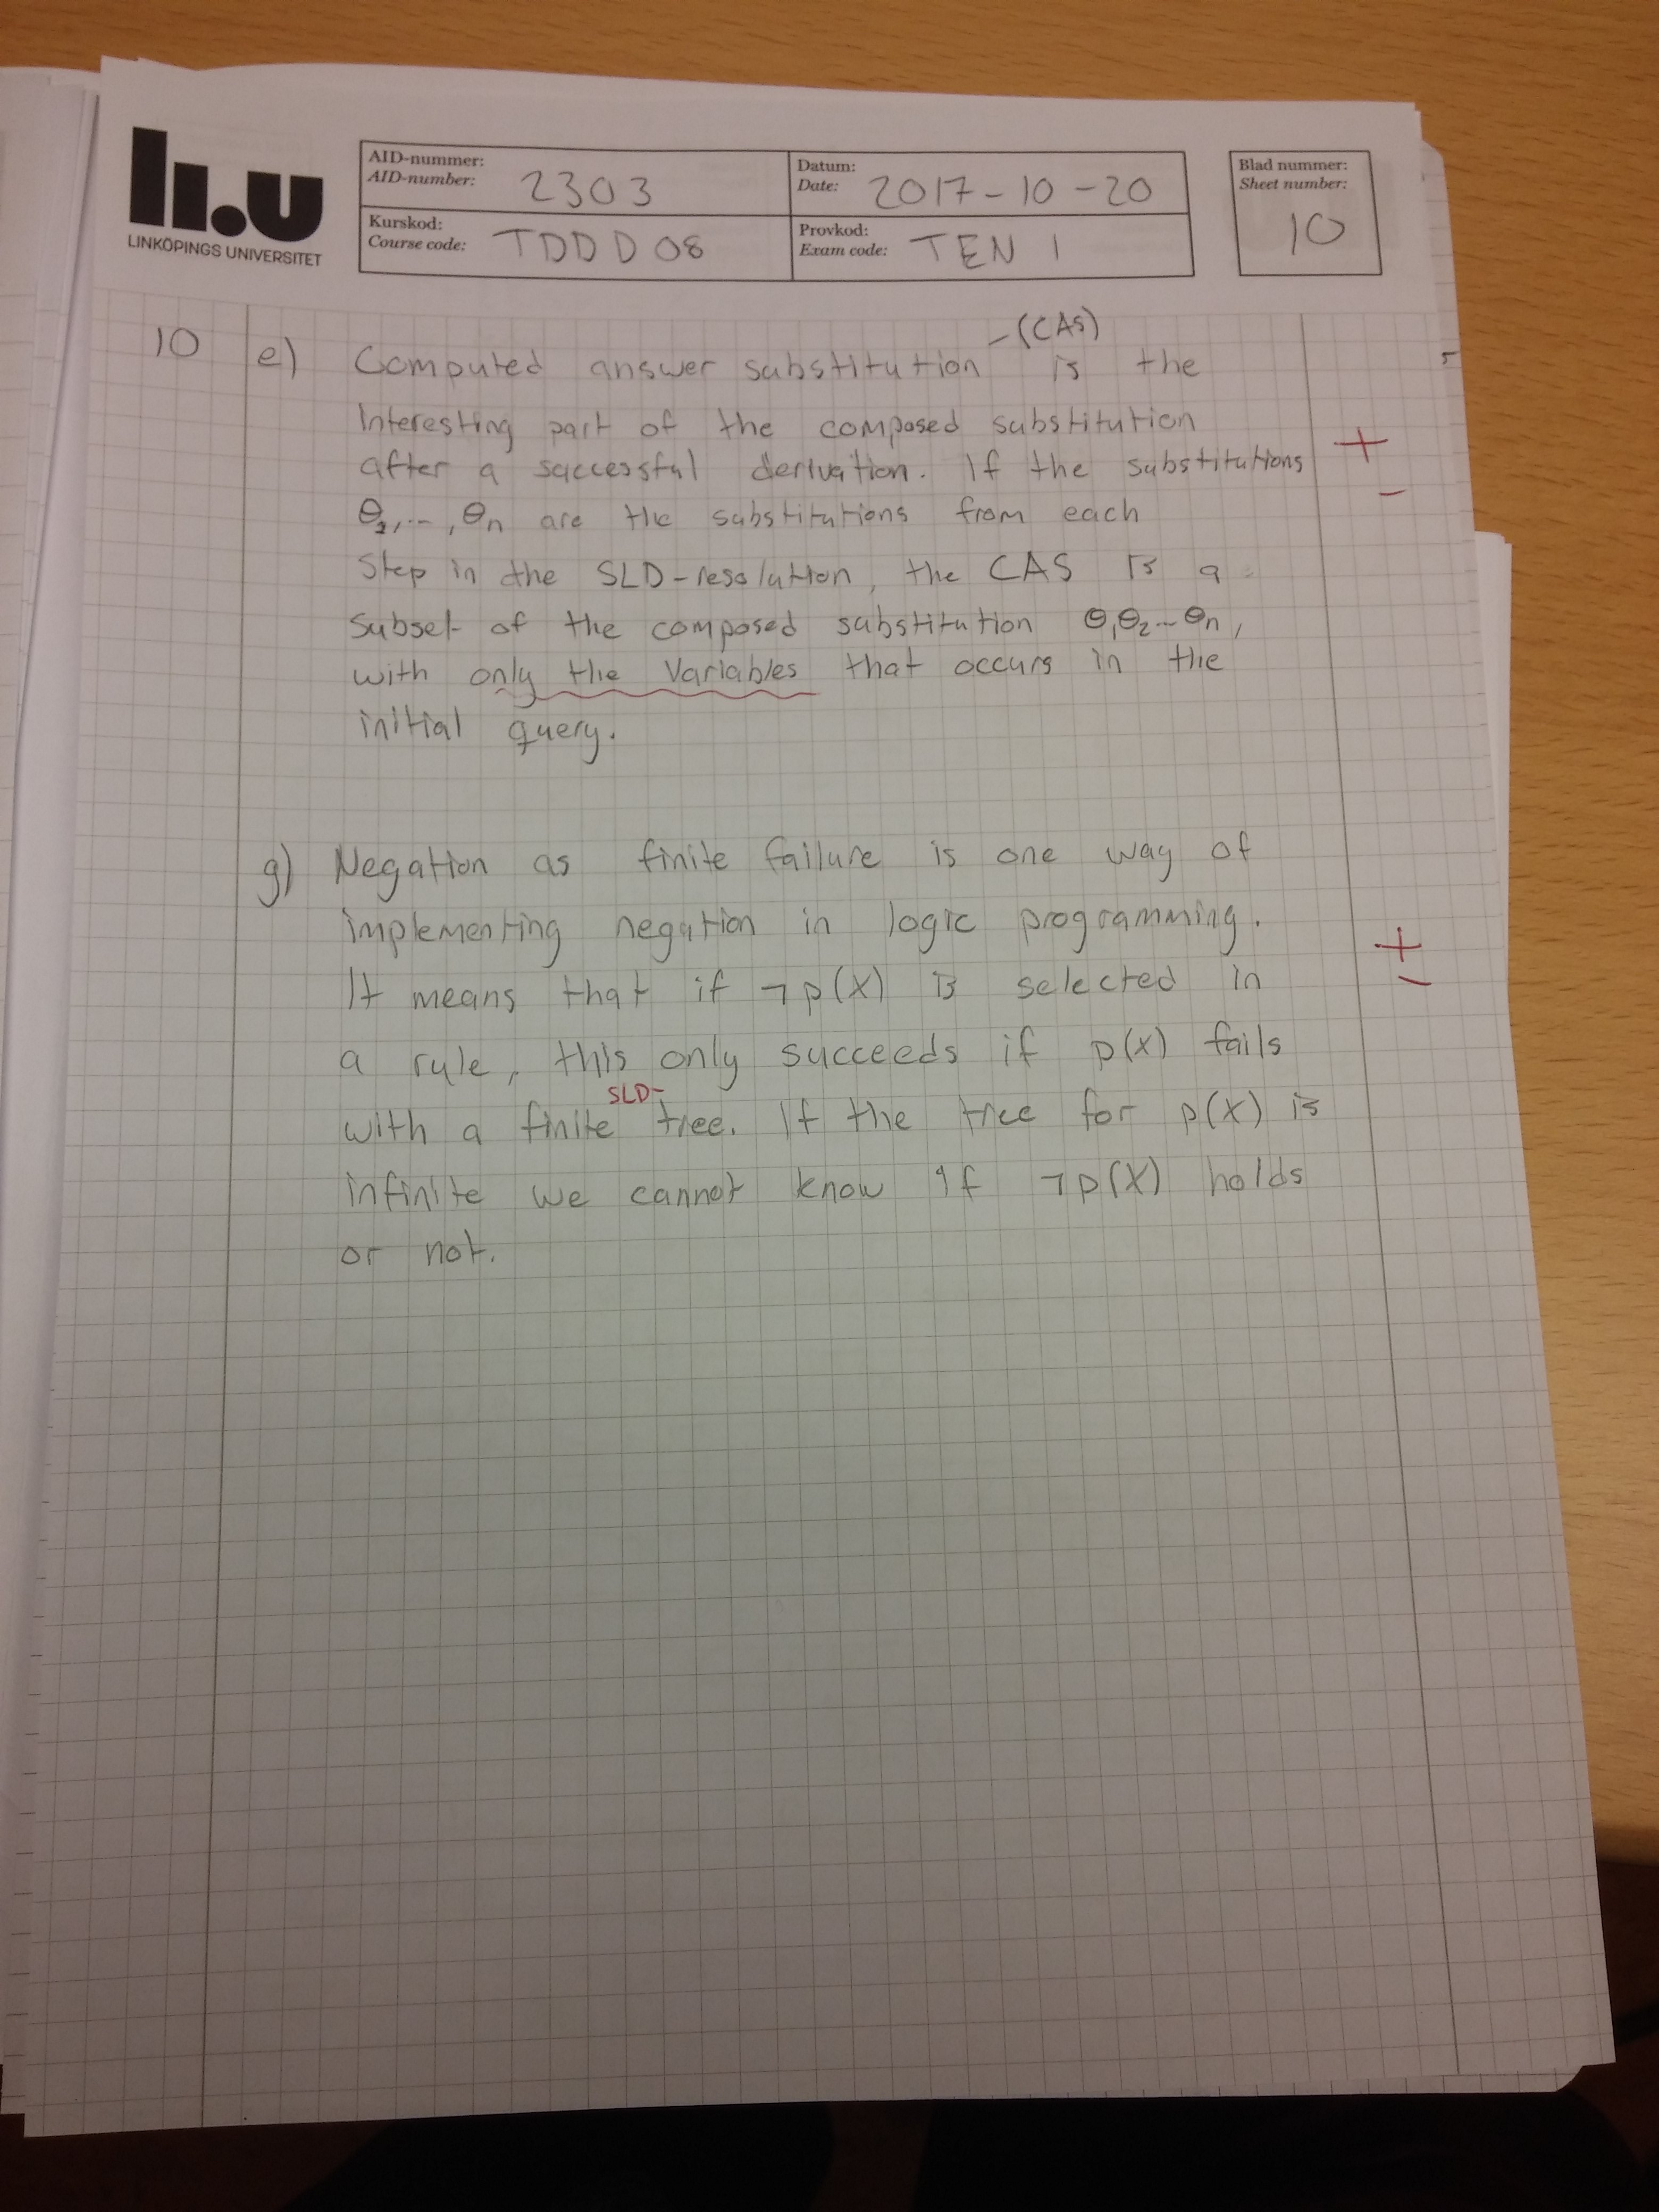 li.u
LINKÖPINGS UNIVERSITET
AID-nummer:
AID-number: 2303
Datum:
Date: 2017-10-20
Blad nummer:
Sheet number:
10
Kurskod:
Course code: TDDD08
Provkod:
Exam code: TEN 1
-(CAS)
10 e) Computed answer substitution is the
interesting part of the composed substitution
after a successful derivation. If the substitutions
+
-
θ₁,..,θn are the substitutions from each
step in the SLD-resolution, the CAS is a
subset of the composed substitution θ₁θ₂...θn,
with only the variables that occurs in the
initial query.
g) Negation as finite failure is one way of
implementing negation in logic programming.
+
-
It means that if ¬p(X) is selected in
a rule, this only succeeds if p(X) fails
SLD-
with a finite tree. If the tree for p(X) is
infinite we cannot know if ¬p(X) holds
or not.